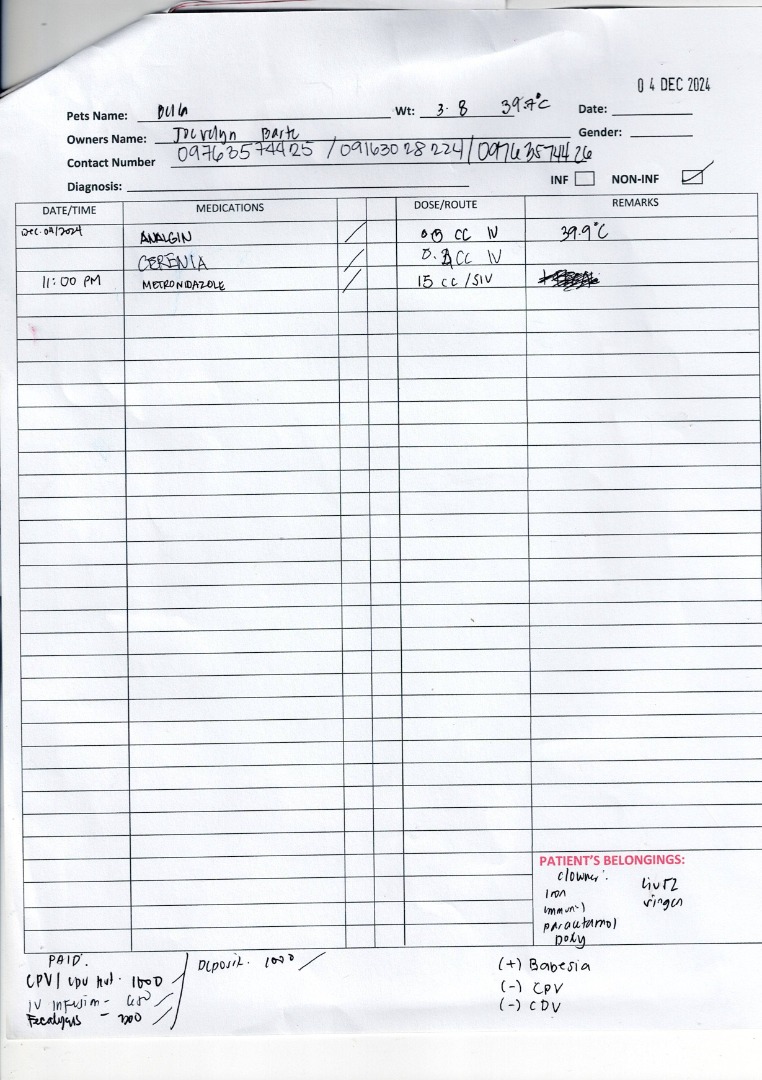 04 DEC 2024
Pets Name: Wt: 3.8 39.7°C Date:
Owners Name: Jocelyn Barte Gender:
Contact Number 09763574425 / 09163028224 / 09763574426
Diagnosis: INF NON-INF
DATE/TIME MEDICATIONS DOSE/ROUTE REMARKS
Dec. 04/2024 ANALGIN / CC IV 39.9°C
CERENIA / CC IV
11:00 PM METRONIDAZOLE / 15 cc /SIV
PATIENT'S BELONGINGS:
clowner:
Iron Liv52
immun-1 ringer
paracetamol
doxy
PAID: Deposit. 1000 /
CPV/ CDV 1000 /
IV Infusion - /
Fecalysis -
(+) Babesia
(-) CPV
(-) CDV